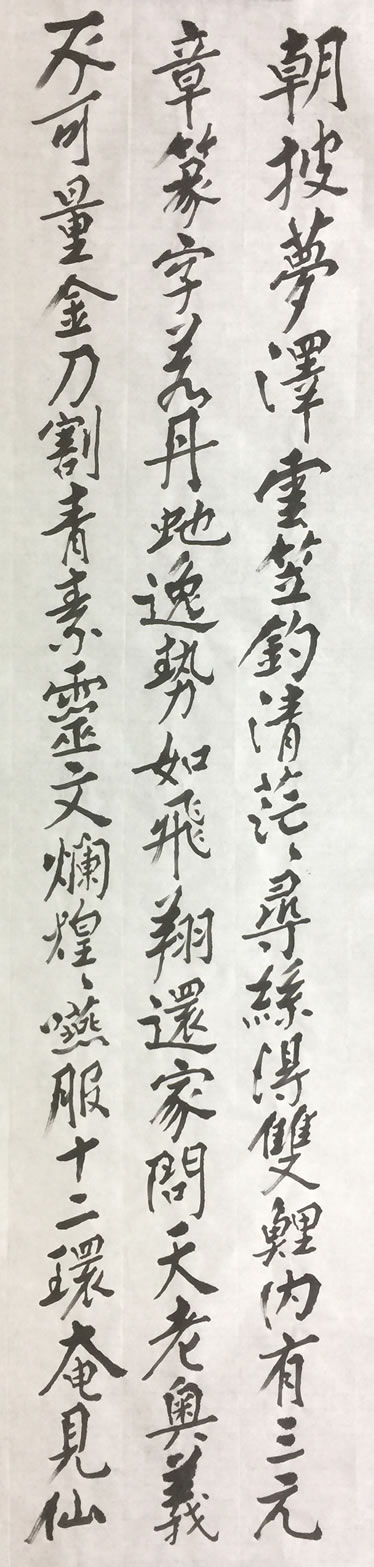 朝披夢澤雲笠釣清茫〻尋絲得雙鯉内有三元
章篆字若丹虵逸勢如飛翔還家問天老奥義
不可量金刀割青素靈文爛煌〻嚥服十二環奄見仙